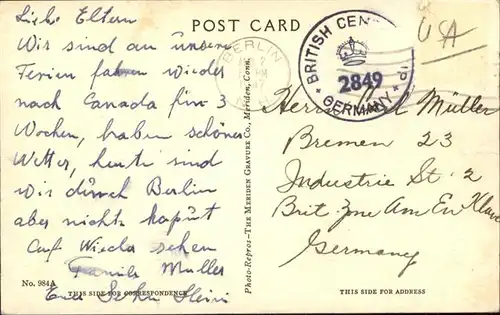 Liebe Eltern
Wir sind an unsere
Ferien fahren wieder
nach Canada für 3
Wochen, haben schönes
Wetter, heute sind
wir dürch Berlin
aber nichts kaput
Auf Wieder sehen
Familie Muller
Euer Sohn Heini
No. 984A
THIS SIDE FOR CORRESPONDENCE
POST CARD
BERLIN
BRITISH CEN
2849
GERMANY
USA
Photo-Repros—THE MERIDEN GRAVURE CO., Meriden, Conn.
Müller
Bremen 23
Industrie St. 2
Brit Zone Am En Klave
Germany
THIS SIDE FOR ADDRESS